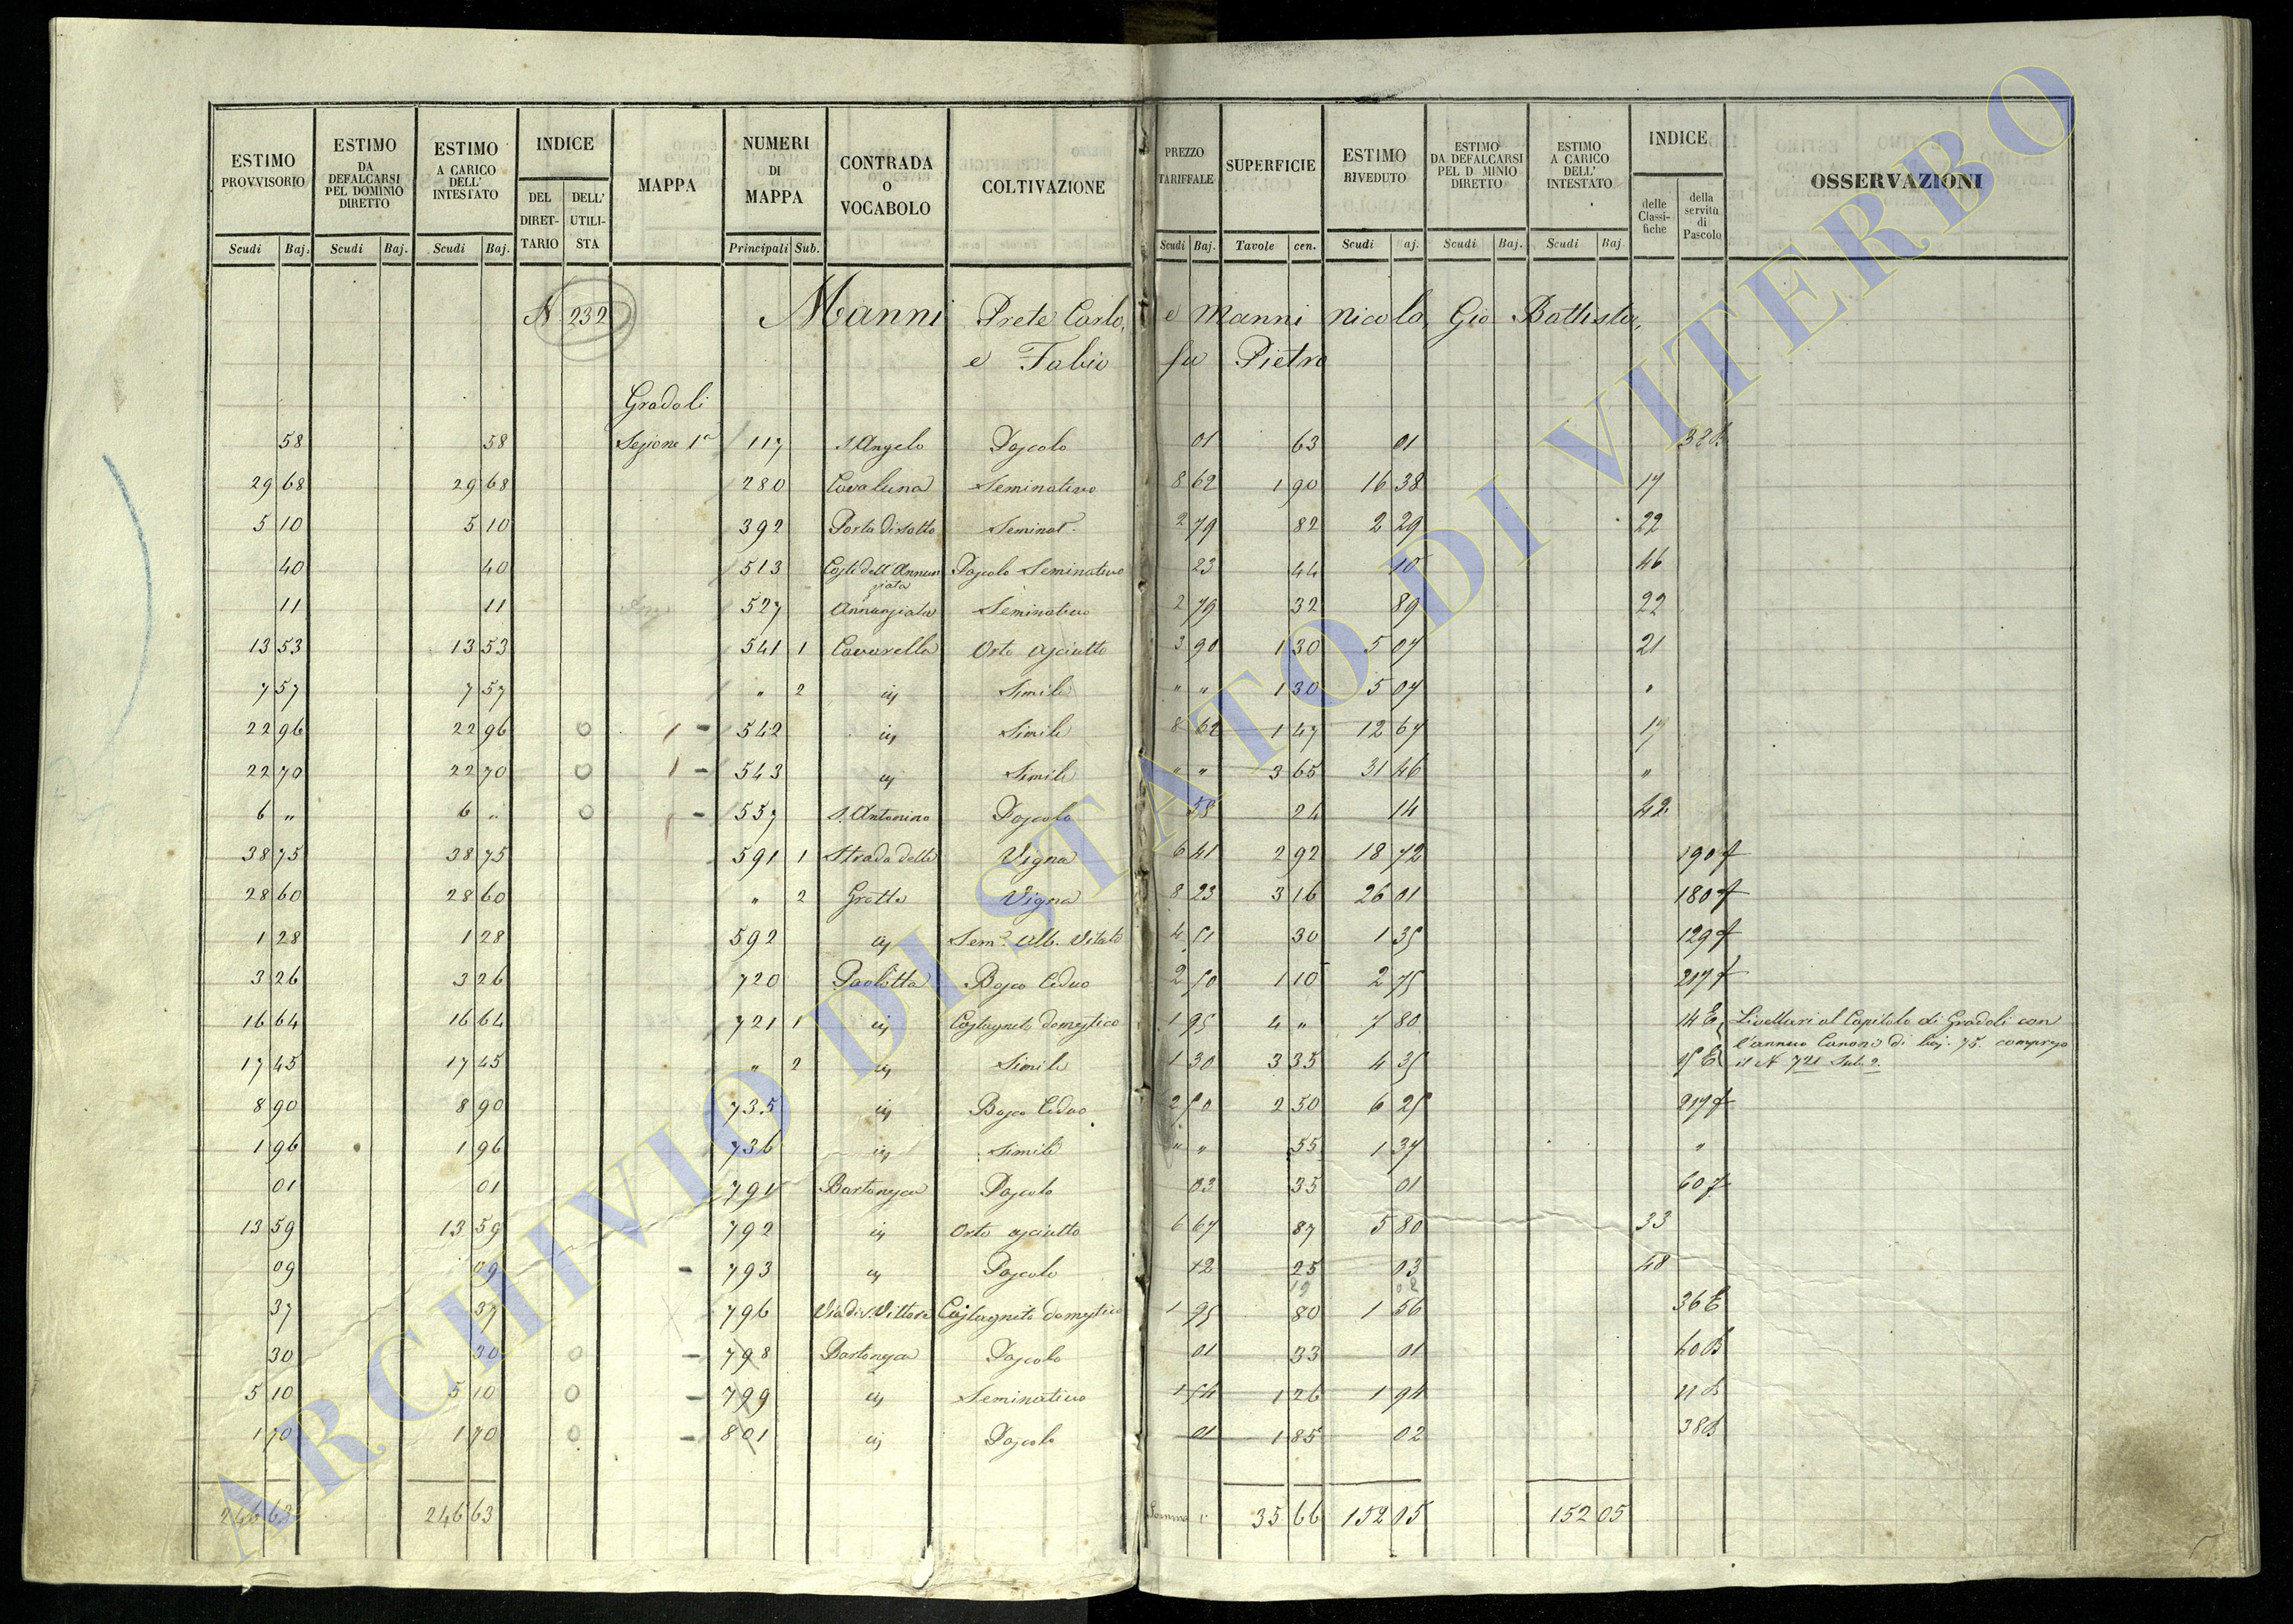 ESTIMO PROVVISORIO | ESTIMO DA DEFALCARSI PEL DOMINIO DIRETTO | ESTIMO A CARICO DELL' INTESTATO | INDICE | MAPPA | NUMERI DI MAPPA | CONTRADA O VOCABOLO | COLTIVAZIONE | PREZZO TARIFFALE | SUPERFICIE | ESTIMO RIVEDUTO | ESTIMO DA DEFALCARSI PEL D MINIO DIRETTO | ESTIMO A CARICO DELL' INTESTATO | INDICE | OSSERVAZIONI
DEL DIRETTARIO | DELL' UTILISTA | delle Classifiche | della servitù di Pascolo
Scudi | Baj. | Scudi | Baj. | Scudi | Baj. | Principali | Sub. | Scudi | Baj. | Tavole | cen. | Scudi | aj. | Scudi | Baj. | Scudi | Baj.
N 232 Manni Prete Carlo, e Manni Nicola, Gio Battista,
e Fabio fu Pietro
Gradoli
58 | 58 | Sezione 1a | 117 | S. Angelo | Pascolo | 01 | 63 | 01 | 32
29 68 | 29 68 | 280 | Cavaluna | Seminativo | 8 62 | 1 90 | 16 38 | 17
5 10 | 5 10 | 392 | Porta di sotto | Seminat. | 2 79 | 82 | 2 29 | 22
40 | 40 | 513 | Coste dell'Annunziata | Pascolo Seminativo | 23 | 44 | 10 | 46
11 | 11 | 527 | Annunziata | Seminativo | 2 79 | 32 | 89 | 22
13 53 | 13 53 | 541 | 1 | Cavarella | Orto asciutto | 3 90 | 1 30 | 5 07 | 21
7 57 | 7 57 | " | 2 | Simile | " " | 1 30 | 5 07 | "
22 96 | 22 96 | 542 | Simile | 8 62 | 1 47 | 12 67 | 17
22 70 | 22 70 | 543 | Simile | " " | 3 65 | 31 46 | "
6 " | 6 " | 557 | S. Antonino | Pascolo | 58 | 24 | 14 | 42
38 75 | 38 75 | 591 | 1 | Strada delle | Vigna | 6 41 | 2 92 | 18 72 | 190
28 60 | 28 60 | " | 2 | Grotte | Vigna | 8 23 | 3 16 | 26 01 | 180
1 28 | 1 28 | 592 | Sem.o Alb. Vitato | 4 51 | 30 | 1 35 | 129
3 26 | 3 26 | 720 | Paolotta | Bosco Ceduo | 2 50 | 1 10 | 2 75 | 217
16 64 | 16 64 | 721 | 1 | Castagneto domestico | 1 95 | 4 " | 7 80 | 14 E | Livellari al Capitolo di Gradoli con
l'annuo Canone di baj. 75. compreso
17 45 | 17 45 | " | 2 | Simile | 1 30 | 3 35 | 4 35 | 15 E | il N 721 Sub 2.
8 90 | 8 90 | 735 | Bosco Ceduo | 2 50 | 2 50 | 6 25 | 217
1 96 | 1 96 | 736 | Simile | " " | 55 | 1 37 | "
01 | 01 | 791 | Pascolo | 03 | 35 | 01 | 60
13 59 | 13 59 | 792 | Orto asciutto | 6 67 | 87 | 5 80 | 33
09 | 09 | 793 | Pascolo | 12 | 25 | 03 | 48
37 | 37 | 796 | Via di S. Vittore | Castagneto domestico | 1 95 | 80 | 1 56 | 36 E
30 | 30 | 798 | Pascolo | 01 | 33 | 01 | 40
5 10 | 5 10 | 799 | Seminativo | 1 54 | 1 26 | 1 94
1 70 | 1 70 | 801 | Pascolo | 01 | 1 85 | 02 | 38
246 63 | 246 63 | Somma | 35 66 | 152 05 | 152 05
ARCHIVIO DI STATO DI VITERBO